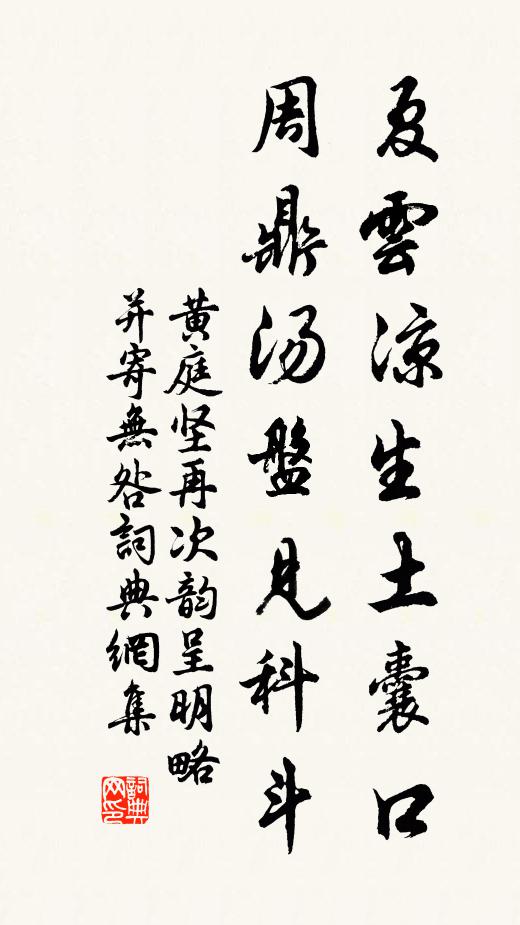 夏雲涼生土囊口
周鼎湯盤見科斗
黄庭坚再次韵呈明略
并寄無咎詞典網集
詞典網印